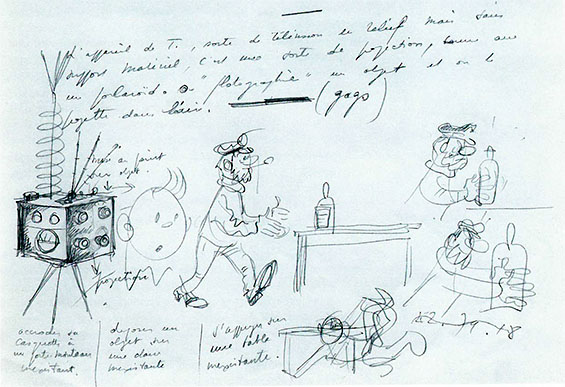 L'appareil de T., sorte de télévision en relief mais sans
support matériel, c'est une sorte de projection, comme un
un polaroïd. On "photographie" un objet et on le
projette dans l'air. (gags)
mise à point
sur objet.
projection
accrocher sa
casquette à
un porte-manteau
inexistant.
déposer un
objet sur
une chaise
inexistante
s'appuyer sur
une table
inexistante.